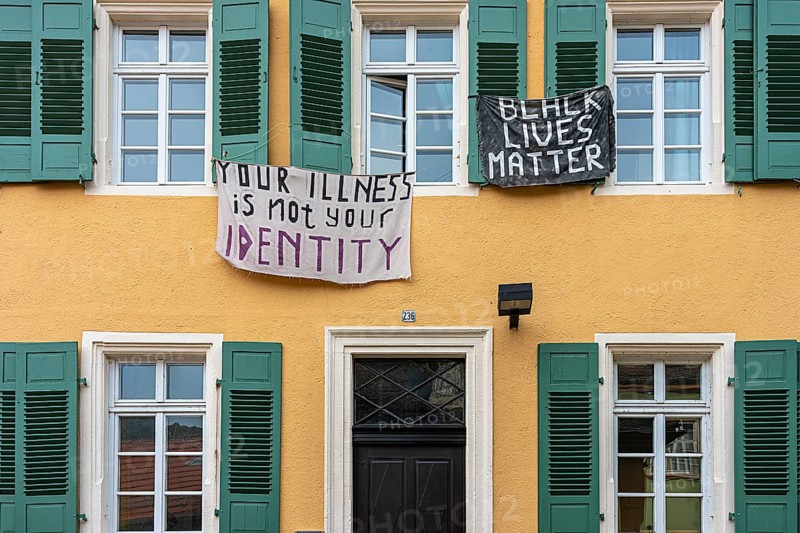 YOUR ILLNESS
is not your
IDENTITY
BLACK
LIVES
MATTER
236
PHOTO12